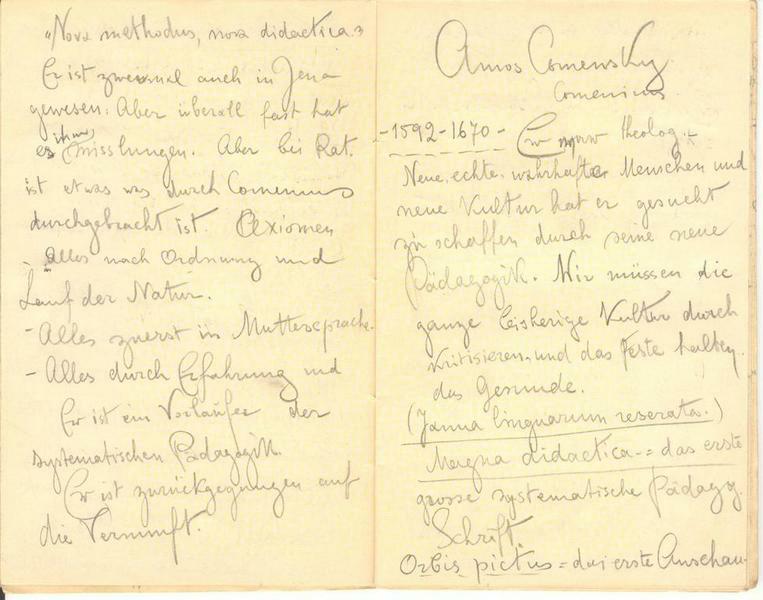 "Nova methodus, nova didactica."
Er ist zweimal auch in Jena
gewesen. Aber überall fast hat
ihm
es misslungen. Aber bei Rat.
ist etwas was durch Comenius
durchgebracht ist. Axiomen
- Alles nach Ordnung und
Lauf der Natur.
- Alles zuerst in Muttersprache.
- Alles durch Erfahrung und
Er ist ein Vorläufer der
systematischen Pädagogik.
Er ist zurückgegungen auf
die Vernunft.
Amos Comensky
Comenius
- 1592-1670 - Er war theolog.
Neue, echte, wahrhafte Menschen und
neue Kultur hat er gesucht
zu schaffen durch seine neue
Pädagogik. Wir müssen die
ganze bisherige Kultur durch
kritisieren und das feste halten,
das Gesunde.
(Janua linguarum reserata.)
Magna didactica = das erste
grosse systematische Pädagog.
Schrift.
Orbis pictus = das erste Anschau-